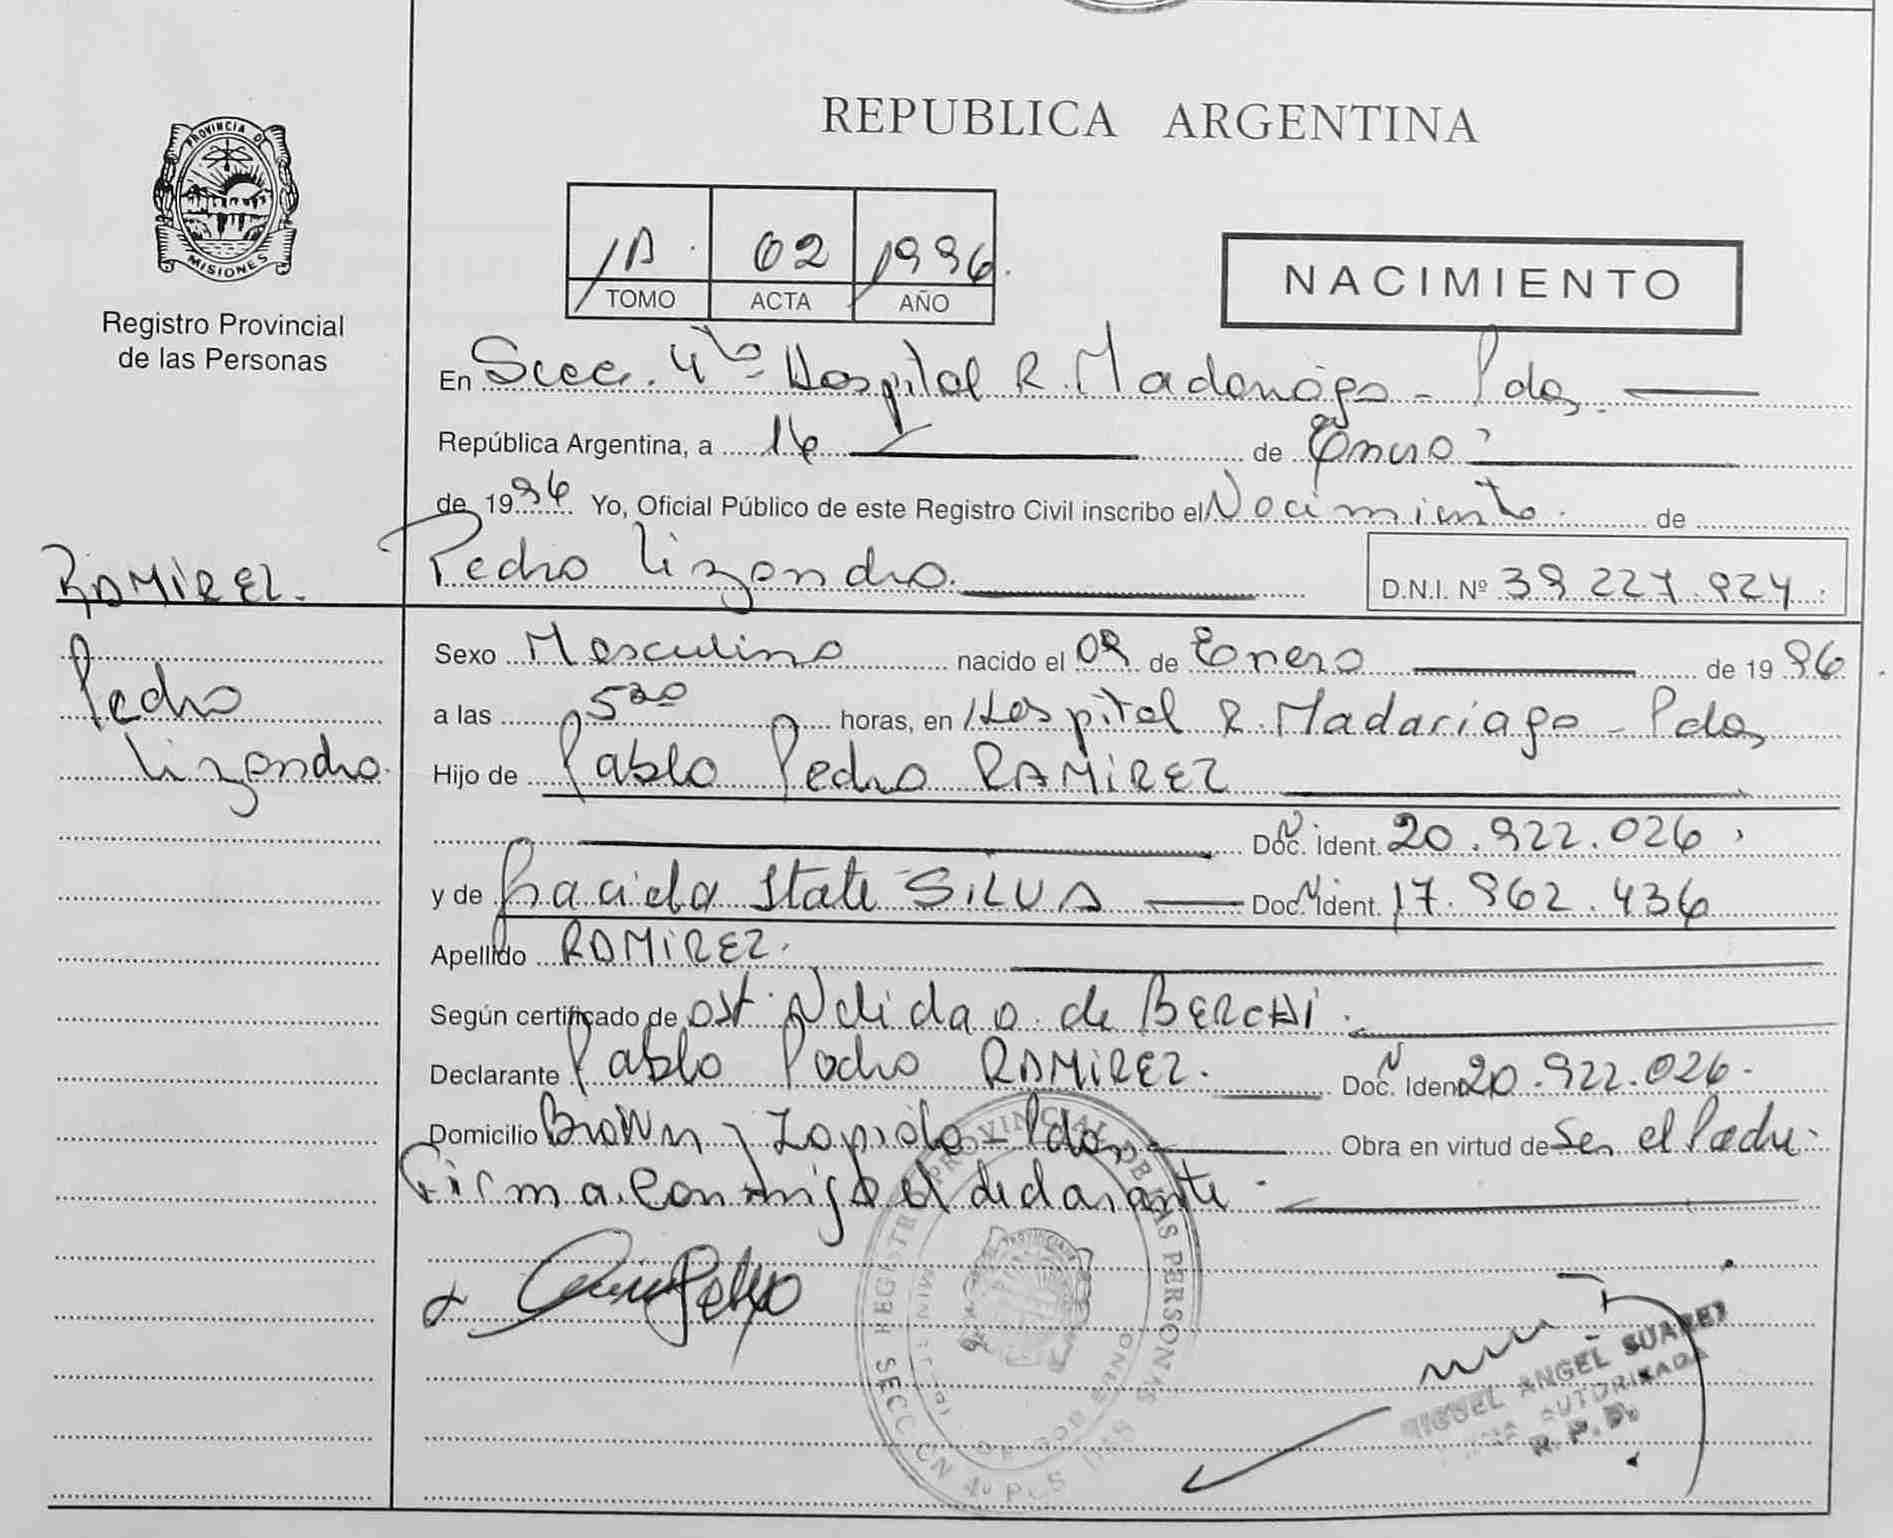 PROVINCIA DE
MISIONES
Registro Provincial
de las Personas
REPUBLICA ARGENTINA
1A 02 1996
TOMO ACTA AÑO
NACIMIENTO
En Secc. 4ta Hospital R. Madariaga - Pdas.
República Argentina, a 16 de Enero
de 1996 Yo, Oficial Público de este Registro Civil inscribo el Nacimiento de
RAMIREZ. Pedro Lizandro. D.N.I. Nº 39.227.924.
Pedro
Lizandro.
Sexo Masculino nacido el 09 de Enero de 1996
a las 5 30 horas, en Hospital R. Madariaga - Pdas
Hijo de Pablo Pedro RAMIREZ
Doc. Ident. 20.922.026
y de Graciela SILVA Doc. Ident. 17.962.436
Apellido RAMIREZ.
Según certificado de Ost. de BERCHI.
Declarante Pablo Pedro RAMIREZ. Doc. Ident. 20.922.026.
Domicilio Brown y Zapiola - Pdas Obra en virtud de Ser el Padre.
Firma conmigo el declarante.
REGISTRO PROVINCIAL DE LAS PERSONAS
SECCION
MIGUEL ANGEL SUAREZ
AUTORIZADA
R. P. P.